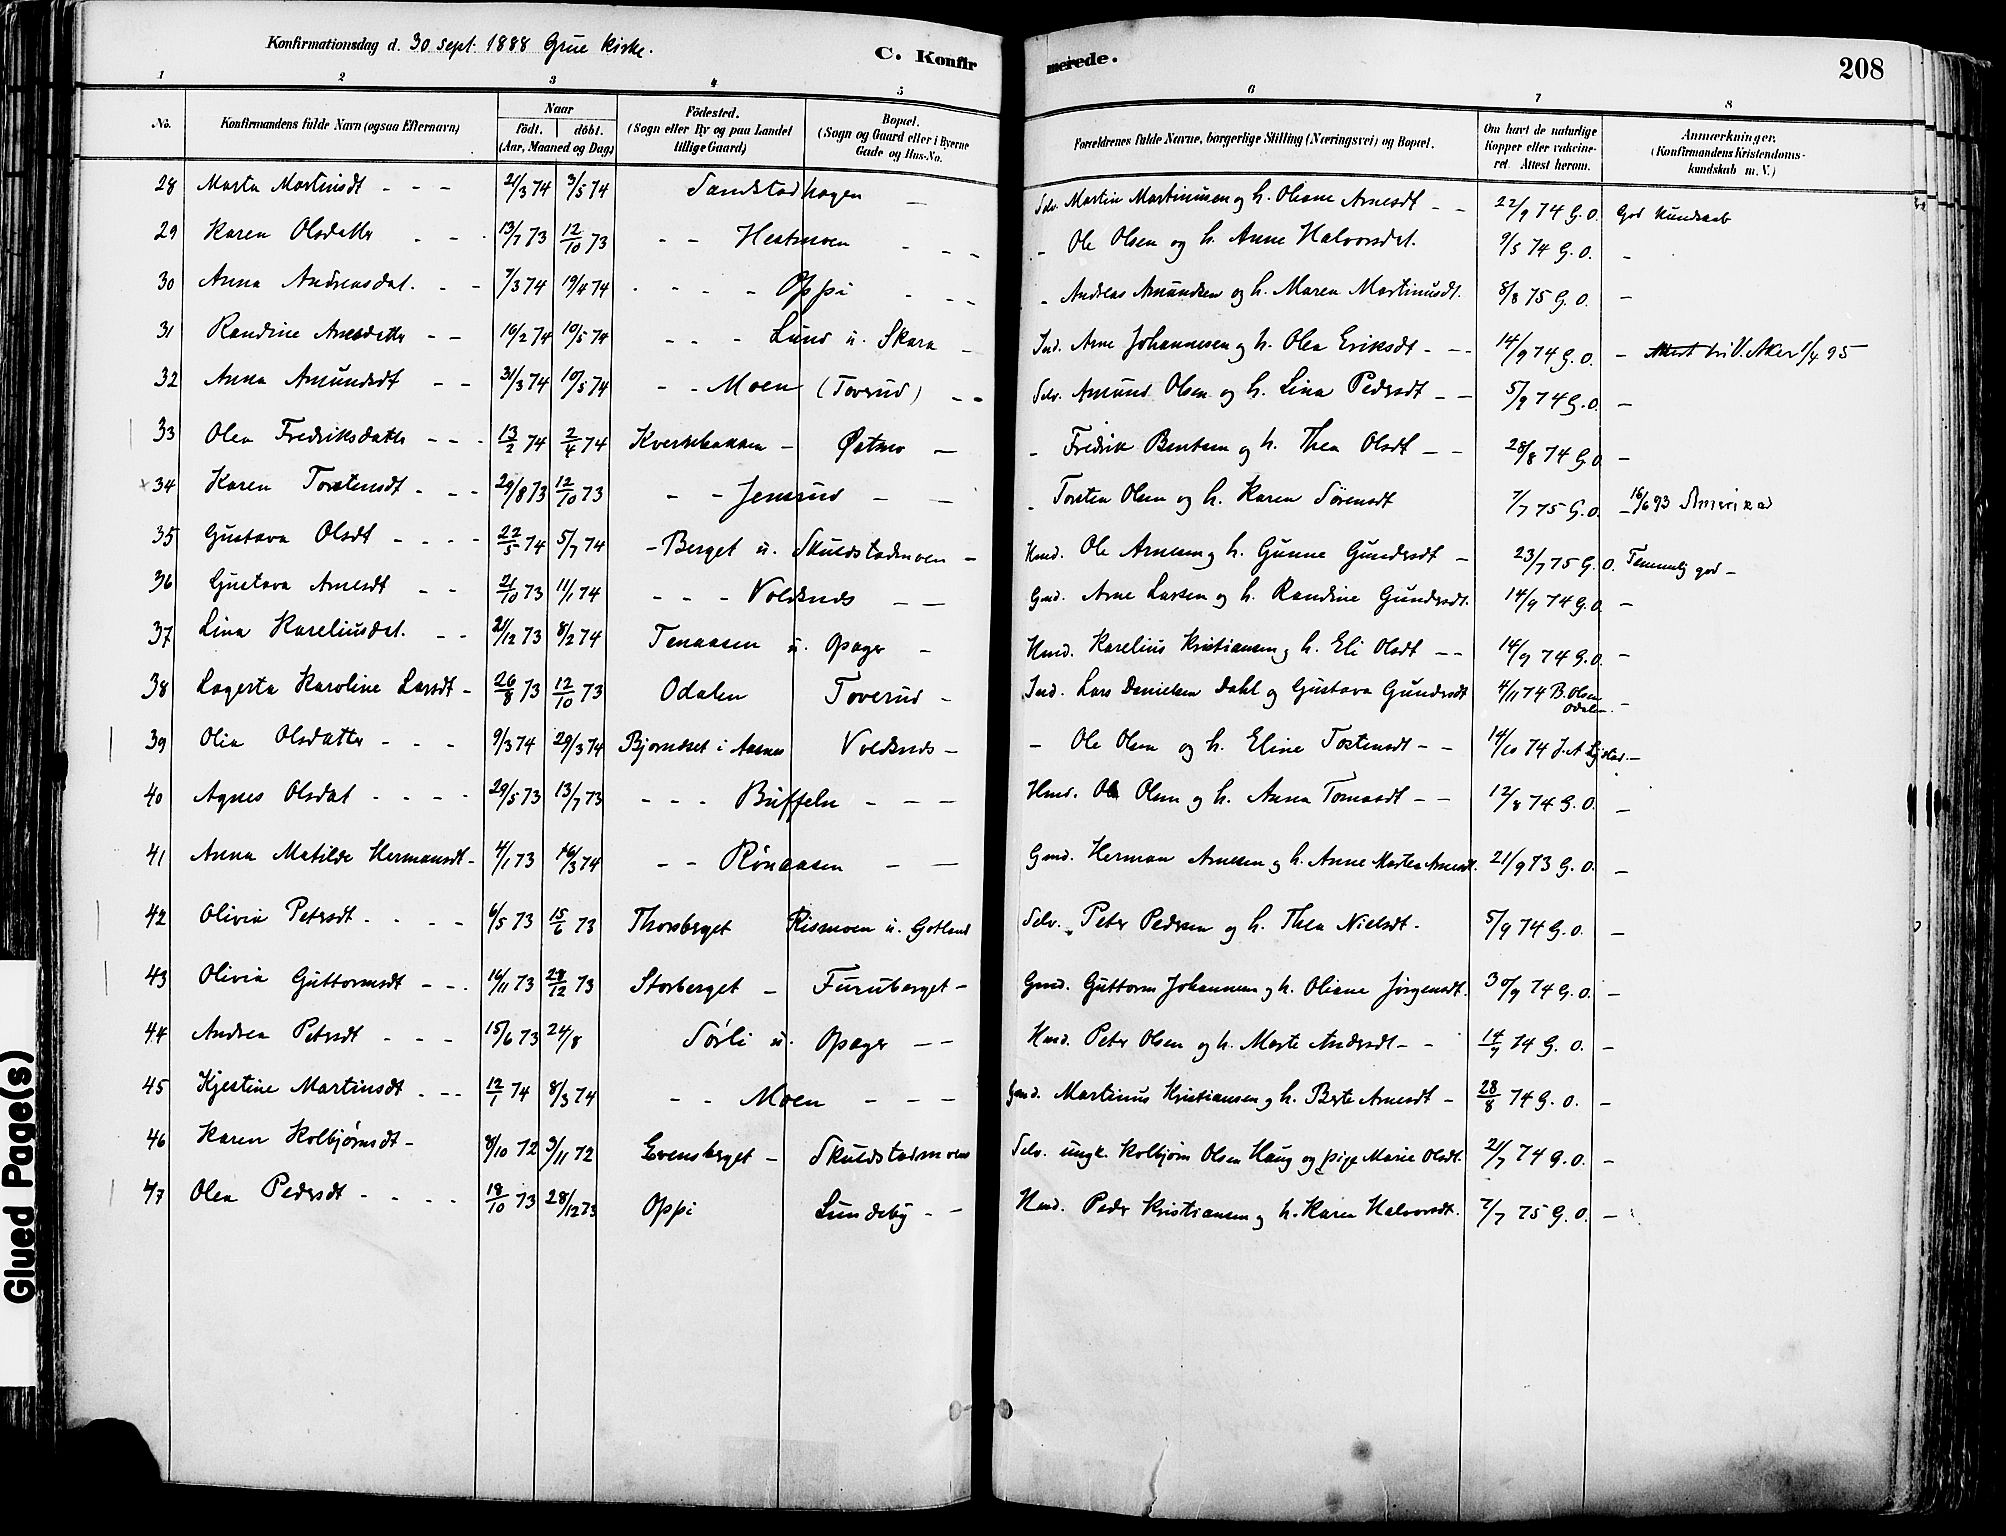 Konfirmationsdag d. 30 sept. 1888 Grue Kirke.
C. Konfir
merede.
208
1 2 3 4 5 6 7 8
No. Konfirmandens fulde Navn (ogsaa Efternavn) Naar födt. döbt. (Aar, Maaned og Dag) Födested. (Sogn eller By og paa Landet tillige Gaard) Bopæl. (Sogn og Gaard eller i Byerne Gade og Hus-No. Forældrenes fulde Navne, borgerlige Stilling (Næringsvei) og Bopæl. Om havt de naturlige Kopper eller vakcineret. Attest herom. Anmærkninger. (Konfirmandens Kristendomskundskab m. V.)
28 Marta Martinsdt - - - 21/3 74 3/5 74 Sandstadhagen - Selv. Martin Martinusen og h. Oliane Arnesdt - - 22/9 74 G.O. God kundskab
29 Karen Olsdatter - - - 13/7 73 12/10 73 - - Hestmoen - - - - Ole Olsen og h. Anne Halvorsdt. 9/5 74 G.O. -
30 Anna Andreasdat. - - 7/3 74 19/4 74 - - - - Oppi - - - - Andreas Amundsen og h. Maren Martinusdt. 8/8 75 G.O. -
31 Randine Arnesdatter - - 16/2 74 10/5 74 - - - Lund u. Skara - Ind. Arne Johannesen og h. Olea Eriksdt - - 14/9 74 G.O. - Attest til V. Aker 1/4 95
32 Anna Amundsdt - - 31/3 74 10/5 74 - - Moen (Toverud) - - Selv. Amund Olsen og h. Lina Pedersdt - - 5/9 74 G.O. -
33 Olea Fredriksdatter - - - 13/2 74 2/4 74 Kvernbakken - Østmo - - Fredrik Bentsen og h. Thea Olsdt - - 28/8 74 G.O -
34 Karen Torstensdt - - - 29/8 73 12/10 73 - - Jensrud - - - Torsten Olsen og h. Karen Sørensdt 7/7 75 G.O. - 16/6 93 Amerika
35 Gustava Olsdt - - - - 22/5 74 5/7 74 - Berget u. Skuldstadmoen - Hmd. Ole Arnesen og h. Gunne Gundersdt - 23/7 75 G.O. Temmelig god -
36 Gustava Arnesdt - - 21/10 73 11/1 74 - - - Voldsnds - - Gmd. Arne Larsen og h. Randine Gundersdt. 14/9 74 G.O. -
37 Lina Kareliusdat. - - 21/12 73 8/2 74 Tenaasen u. Opager - Hmd. Karelius Kristiansen og h. Eli Olsdt - - 14/9 74 G.O. -
38 Lagerta Karoline Larsdt - 26/8 73 12/10 73 Odalen Toverud - Ind. Lars Danielsen Dahl og Gustava Gundersdt 4/11 74 B. Olsen Odalen. -
39 Olia Olsdatter - - - 9/3 74 29/3 74 Bjørneset i Aasnes Voldsnds - - Ole Olsen og h. Eline Tostensdt - - 14/10 74 -
40 Agnes Olsdat - - - - 29/5 73 13/7 73 - - - Buffeln - - - Hmd. Ole Olsen og h. Anna Tomasdt - - 12/8 74 G.O. -
41 Anna Matilde Hermansdt - 4/1 73 16/3 74 - - Rönaasen - - Gmd. Herman Arnesen og h. Anne Marten Arnesdt. 21/9 73 G.O. -
42 Olivia Petersdt - - - - 6/5 73 15/6 73 Thorsberget Rismoen u. Gotland Selv. Peter Pedersen og h. Thea Nielsdt. 5/9 74 G.O. -
43 Olivia Guttormsdt - - - 16/11 73 28/12 73 Storberget - Furuberget - Gmd. Guttorm Johannesen og h. Oliane Jørgensdt. 30/9 74 G.O. -
44 Andrea Petersdt - - - 15/6 73 24/8 Sørli u. Opager - - Hmd. Peter Olsen og h. Marte Andersdt - - 14/9 74 G.O. -
45 Kjestine Martinsdt - - - 12/1 74 8/3 74 - - Moen - - - Gmd. Martinus Kristiansen og h. Berte Arnesdt - 28/8 74 G.O. -
46 Karen Kolbjørnsdt - 8/10 72 3/11 72 Evensberget - Skuldstadmoen Selv. ungk. Kolbjørn Olsen Haug og pige Marie Olsdt. 21/7 74 G.O. -
47 Olea Pedersdt - - - - 18/10 73 28/12 73 Oppi Lundeby - - Hmd. Peder Kristiansen og h. Karen Halvorsdt. 7/7 75 G.O. -
Glued Page(s)